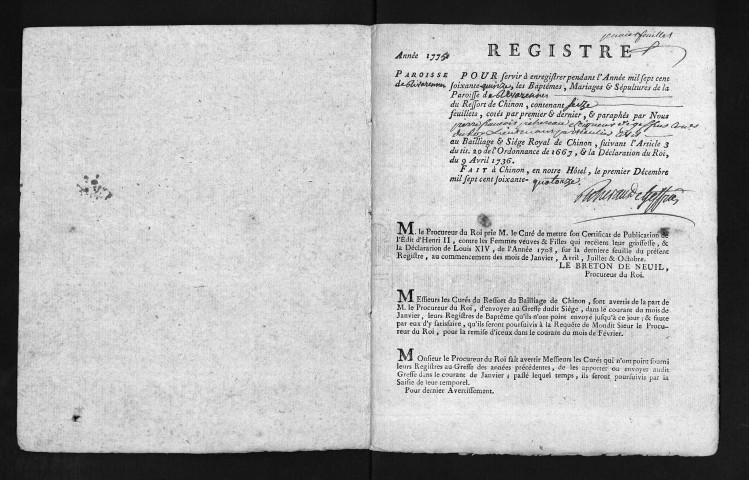 premier feuillet
REGISTRE
Année 1775
PAROISSE
de Rivarennes
POUR servir à enregistrer pendant l'Année mil sept cent
soixante-quinze, les Baptêmes, Mariages & Sépultures de la
Paroisse de Rivarennes
du Ressort de Chinon, contenant seize
feuillets, cotés par premier & dernier, & paraphés par Nous
pierre françois seigneur de
du Roy Lieutenant particulier
au Bailliage & Siége Royal de Chinon, suivant l'Article 3
du tit. 20 de l'Ordonnance de 1667, & la Déclaration du Roi,
du 9 Avril 1736.
FAIT à Chinon, en notre Hôtel, le premier Décembre
mil sept cent soixante-quatorze.
M. le Procureur du Roi prie M. le Curé de mettre son Certificat de Publication de
l'Edit d'Henri II, contre les Femmes veuves & Filles qui recèlent leur grossesse, &
la Déclaration de Louis XIV, de l'Année 1708, sur la derniere feuille du présent
Registre, au commencement des mois de Janvier, Avril, Juillet & Octobre.
LE BRETON DE NEUIL,
Procureur du Roi.
MEssieurs les Curés du Ressort du Bailliage de Chinon, sont avertis de la part de
M. le Procureur du Roi, d'envoyer au Greffe dudit Siége, dans le courant du mois de
Janvier, leurs Registres de Baptême qu'ils n'ont point envoyé jusqu'à ce jour; & faute
par eux d'y satisfaire, qu'ils seront poursuivis à la Requête de Mondit Sieur le Procu-
reur du Roi, pour la remise d'iceux dans le courant du mois de Février.
MOnsieur le Procureur du Roi fait avertir Messieurs les Curés qui n'ont point fourni
leurs Registres au Greffe des années précédentes, de les apporter ou envoyer audit
Greffe dans le courant de Janvier; passé lequel temps, ils seront poursuivis par la
Saisie de leur temporel.
Pour dernier Avertissement.